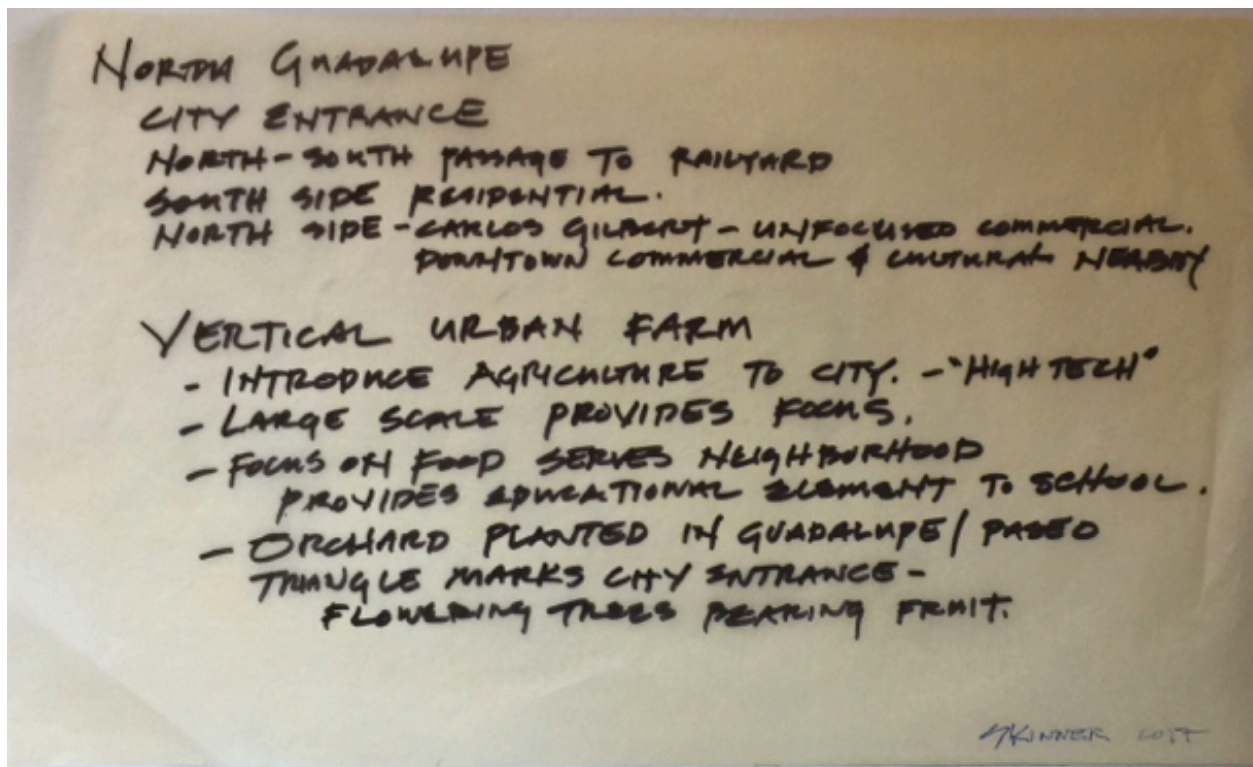 NORTH GUADALUPE
CITY ENTRANCE
NORTH-SOUTH PASSAGE TO RAILYARD
SOUTH SIDE RESIDENTIAL.
NORTH SIDE - CARLOS GILBERT - UNFOCUSED COMMERCIAL.
DOWNTOWN COMMERCIAL & CULTURAL NEARBY
VERTICAL URBAN FARM
- INTRODUCE AGRICULTURE TO CITY. - "HIGH TECH"
- LARGE SCALE PROVIDES FOCUS.
- FOCUS ON FOOD SERVES NEIGHBORHOOD
PROVIDES EDUCATIONAL ELEMENT TO SCHOOL.
- ORCHARD PLANTED IN GUADALUPE/PASEO
TRIANGLE MARKS CITY ENTRANCE -
FLOWERING TREES BEARING FRUIT.
SKINNER